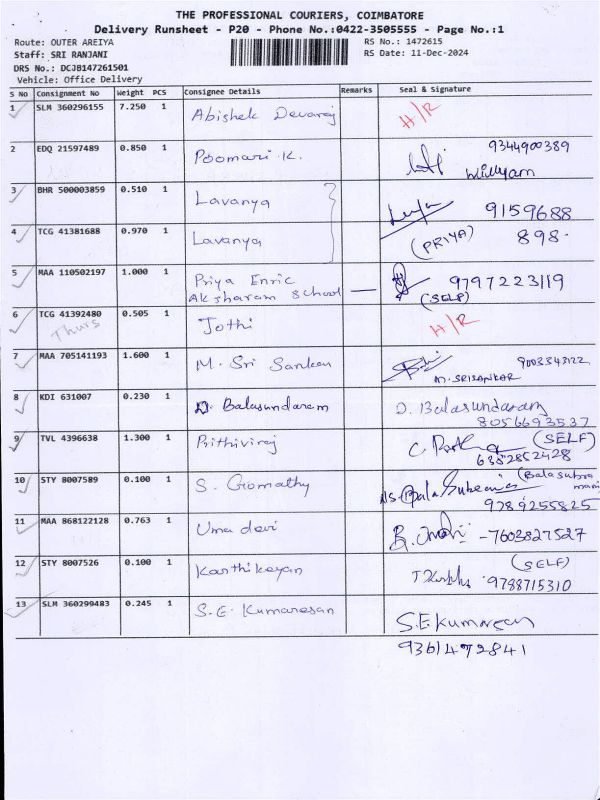 THE PROFESSIONAL COURIERS, COIMBATORE
Delivery Runsheet - P20 - Phone No.:0422-3505555 - Page No.:1
Route: OUTER AREIYA RS No.: 1472615
Staff: SRI RANJANI RS Date: 11-Dec-2024
DRS No.: DCJB147261501
Vehicle: Office Delivery
S No Consignment No Weight PCS Consignee Details Remarks Seal & Signature
1 SLM 360296155 7.250 1 Abishek Devaraj H/R
2 EDQ 21597489 0.850 1 Poomari K. 9344900389
Williyam
3 BHR 500003859 0.510 1 Lavanya 9159688
4 TCG 41381688 0.970 1 Lavanya (PRIYA) 898-
5 MAA 110502197 1.000 1 Priya Enric 9797223119
Aksharam School (SELF)
6 TCG 41392480 0.505 1 Jothi H/R
Thurs
7 MAA 705141193 1.600 1 M. Sri Sankar 9003343122
M. SRISANKAR
8 KDI 631007 0.230 1 D. Balasundaram D. Balasundaram
8056693537
9 TVL 4396638 1.300 1 Prithiviraj (SELF)
6382852428
10 STY 8007589 0.100 1 S. Gomathy (Balasubra
mani
9789255825
11 MAA 868122128 0.763 1 Uma devi -7603827527
12 STY 8007526 0.100 1 Karthikeyan (SELF)
9788715310
13 SLM 360299483 0.245 1 S.E. Kumaresan S.E Kumaresan
9361472841